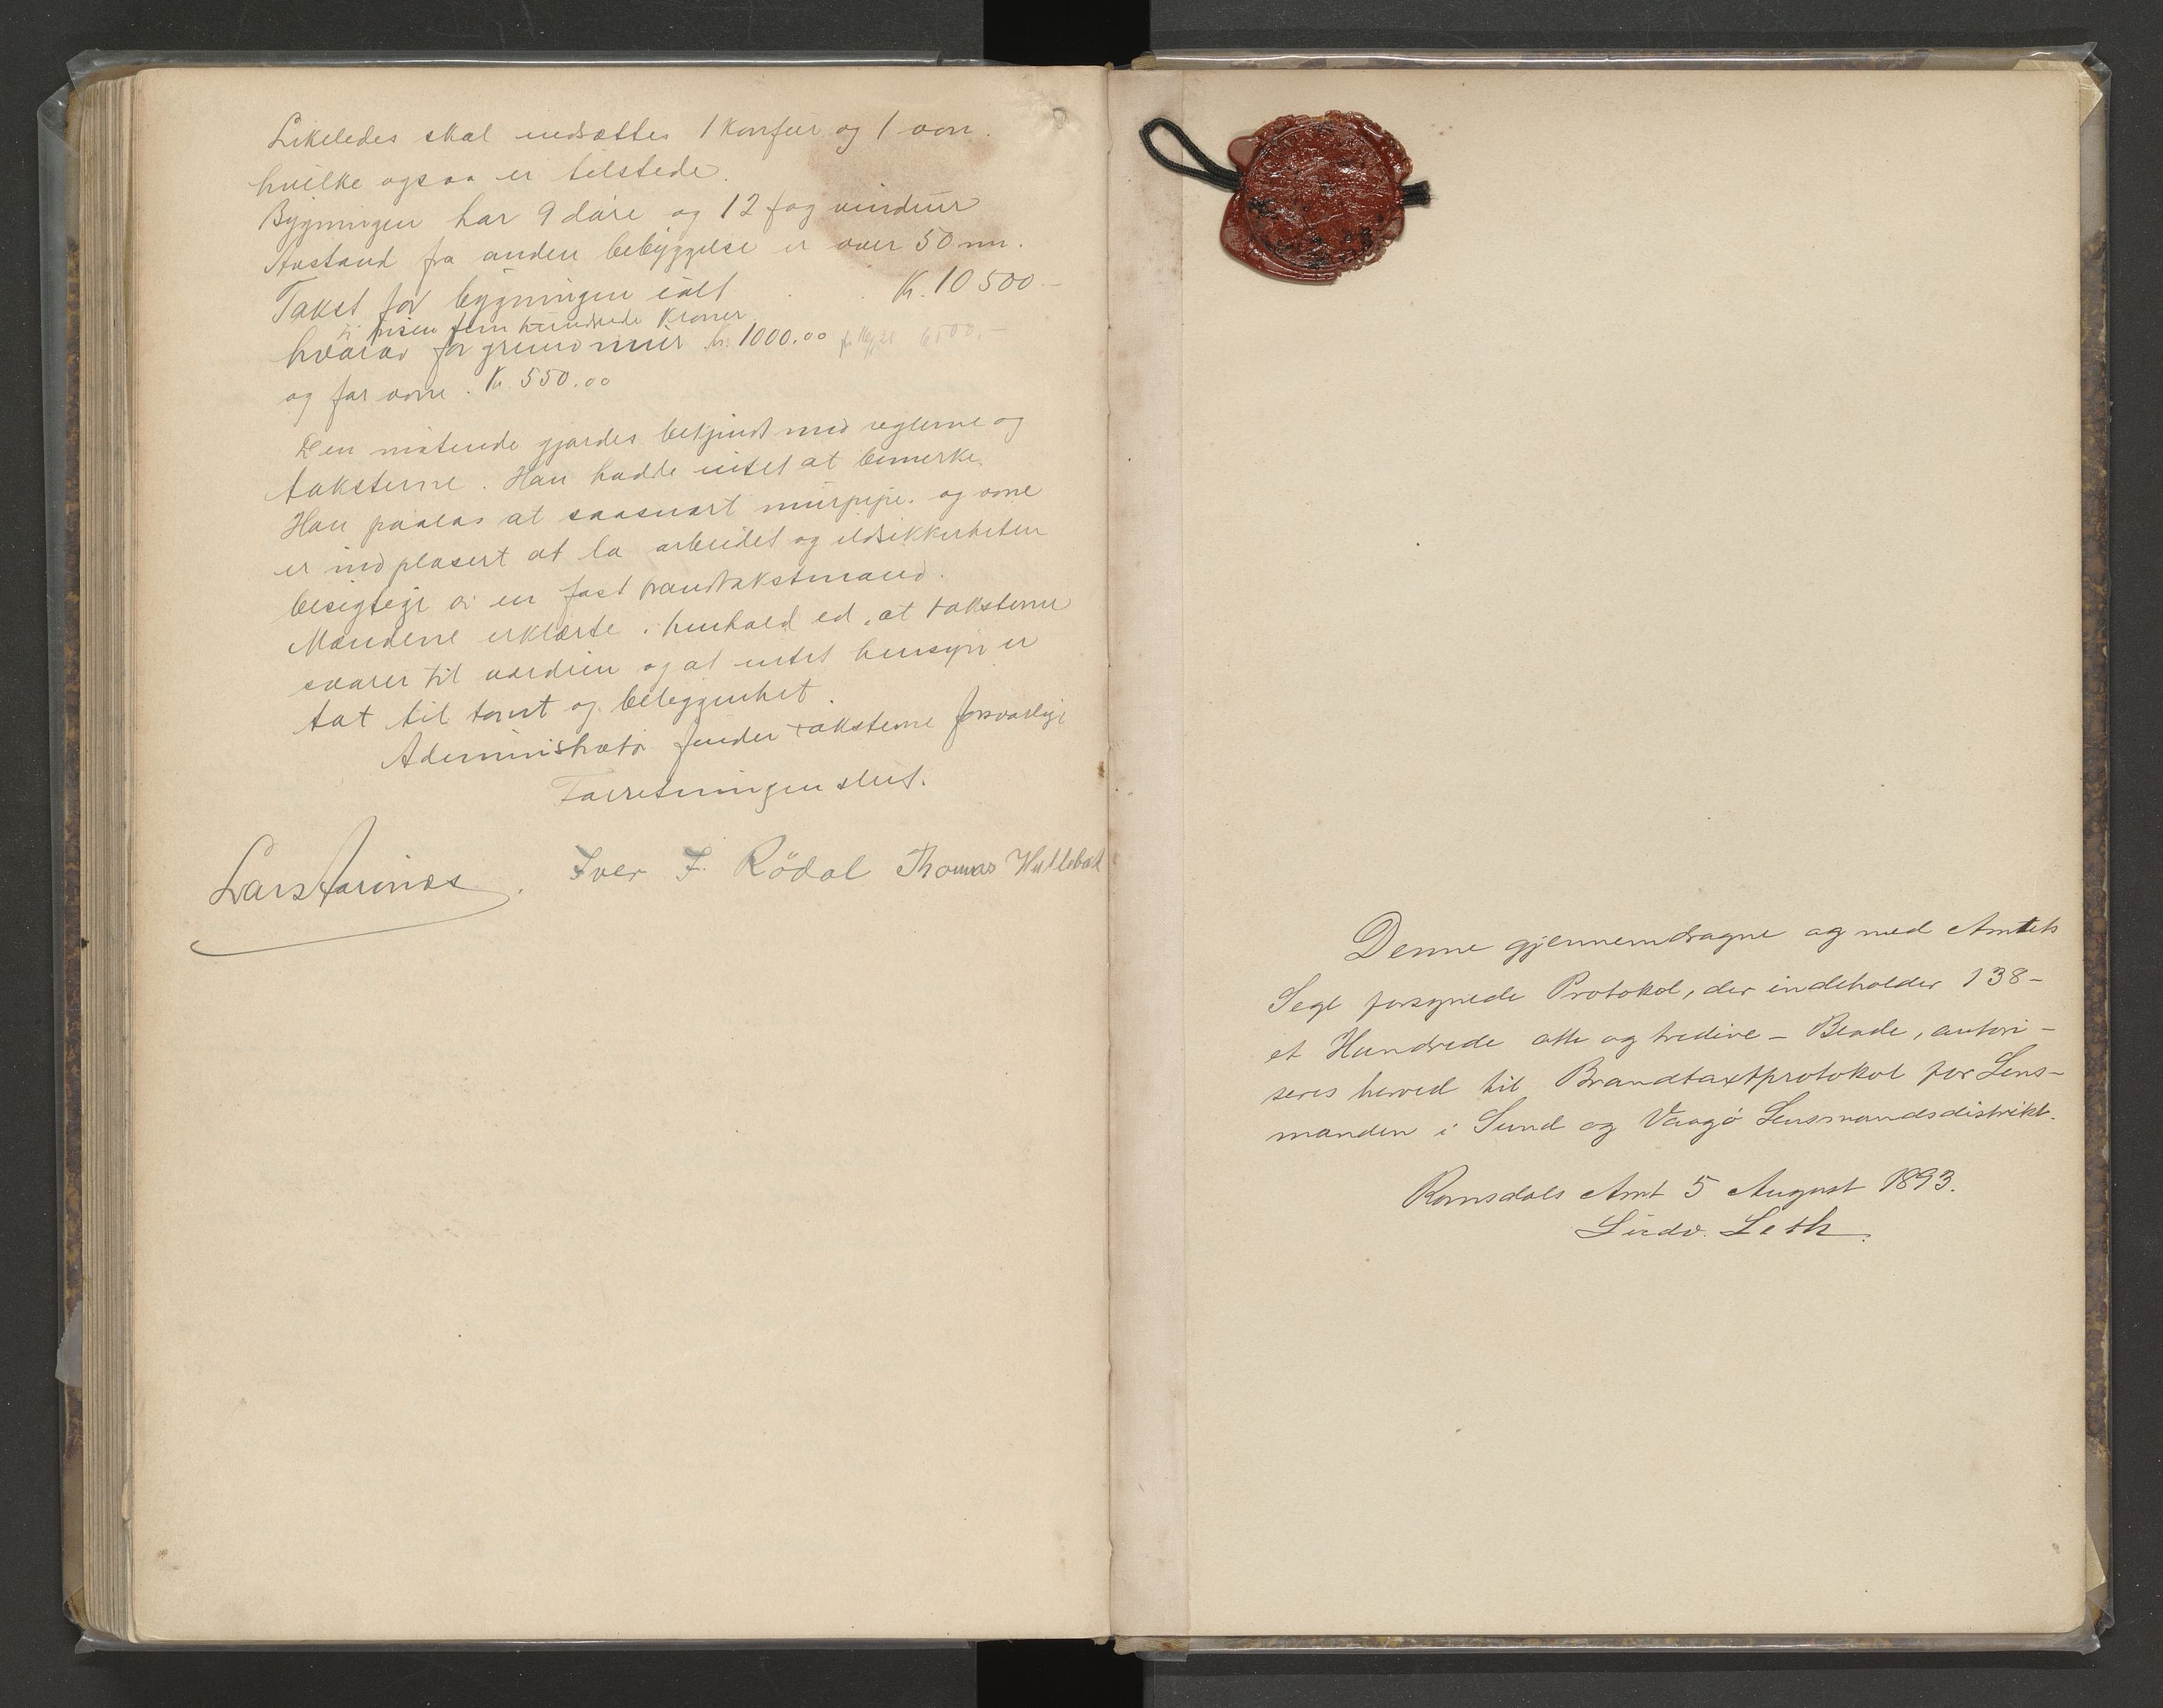 Likeledes skal indsættes 1 komfur og 1 ovn.
hvilke ogsaa er tilstede.
Bygningen har 9 døre og 12 fag vinduer
Avstand fra anden bebyggelse er over 50 m.
Takst for bygningen ialt Kr. 10 500.-
ti tusen fem hundrede Kroner
hvorav for grundmur kr. 1000.00
og for ovne. Kr. 550.00
Den møtende gjordes bekjendt med reglerne og
taksterne. Han hadde intet at bemerke.
Han paalas at saasnart murpipe. og ovne
er indplasert at la arbeidet og ildsikkerheten
besigtige av en fast brandtakstmand.
Mændene erklærte i henhold ed, at taksterne
svarer til værdien og at intet hensyn er
tat til tomt og beleggenhet.
Administrator finder taksterne forsvarlige
Forretningen slut.
Lars Aarönæs. Iver F. Rödal Thomas Hullebak
Denne gjennemdragne og med Amtets
Segl forsynede Protokol, der indeholder 138-
et Hundrede otte og tredive - Blade, autori-
seres herved til Brandtaxtprotokol for Lens-
manden i Sund og Vaagø Lensmandsdistrikt.
Romsdals Amt 5 August 1893.
Ludv. Leth.